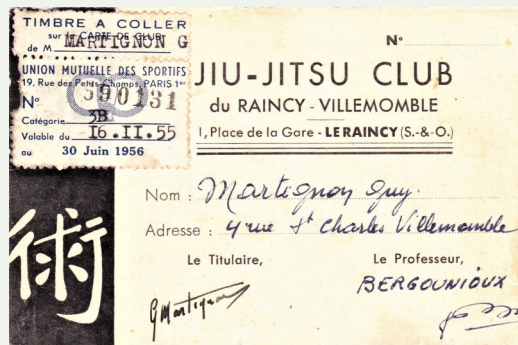 TIMBRE A COLLER
sur la CARTE DE CLUB
de M MARTIGNON G
UNION MUTUELLE DES SPORTIFS
19, Rue des Petits-Champs, PARIS 1er
No 390131
Catégorie 3B
Valable du 16.II.55
au 30 Juin 1956
No
JIU-JITSU CLUB
du RAINCY - VILLEMOMBLE
1, Place de la Gare - LE RAINCY (S.-&-O.)
Nom : Martignon Guy.
Adresse : 4 rue St Charles Villemomble
Le Titulaire,
Le Professeur,
BERGOUNIOUX
G Martignon
術